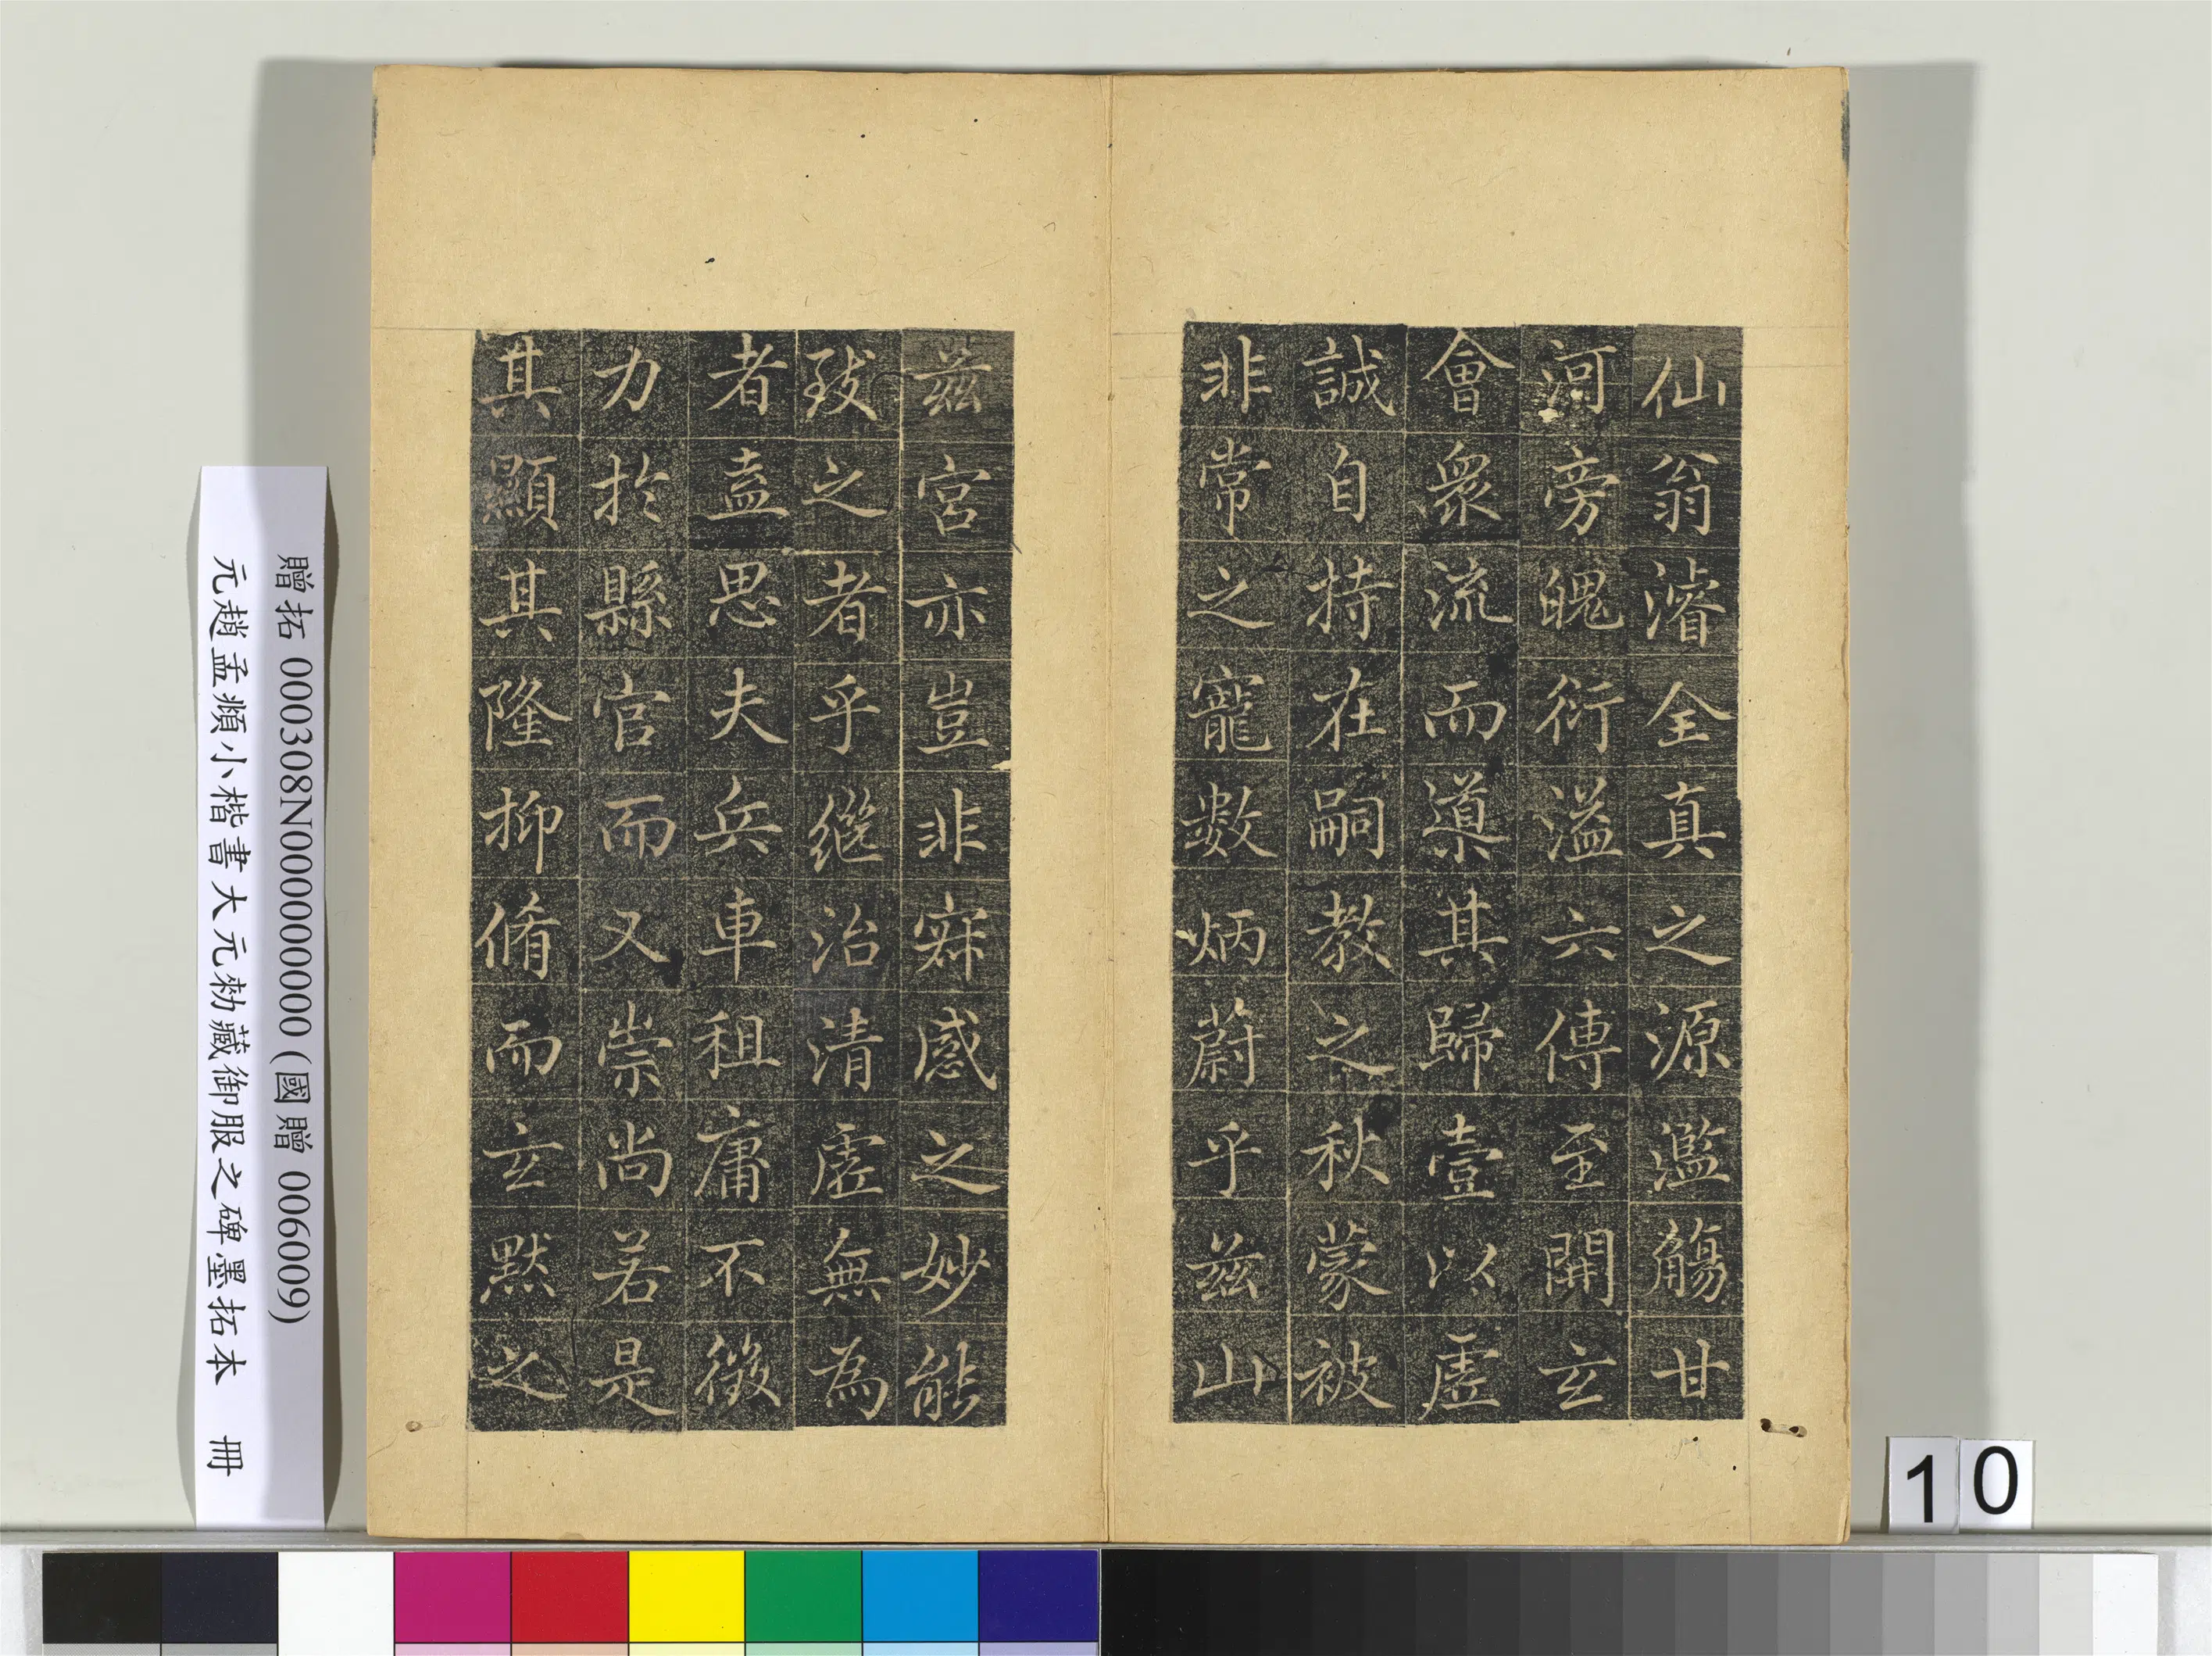 仙翁濬全真之源濫觴甘
河旁魄衍溢六傳至開玄
會衆流而導其歸壹以虛
誠自持在嗣教之秋蒙被
非常之寵數炳蔚乎茲山
茲宮亦豈非寂感之妙能
致之者乎繼治清虛無為
者盍思夫兵車租庸不徵
力於縣官而又崇尚若是
其顯其隆抑脩而玄默之
贈拓 000308N000000000 (國贈 006009)
元趙孟頫小楷書大元勑藏御服之碑墨拓本 冊
10